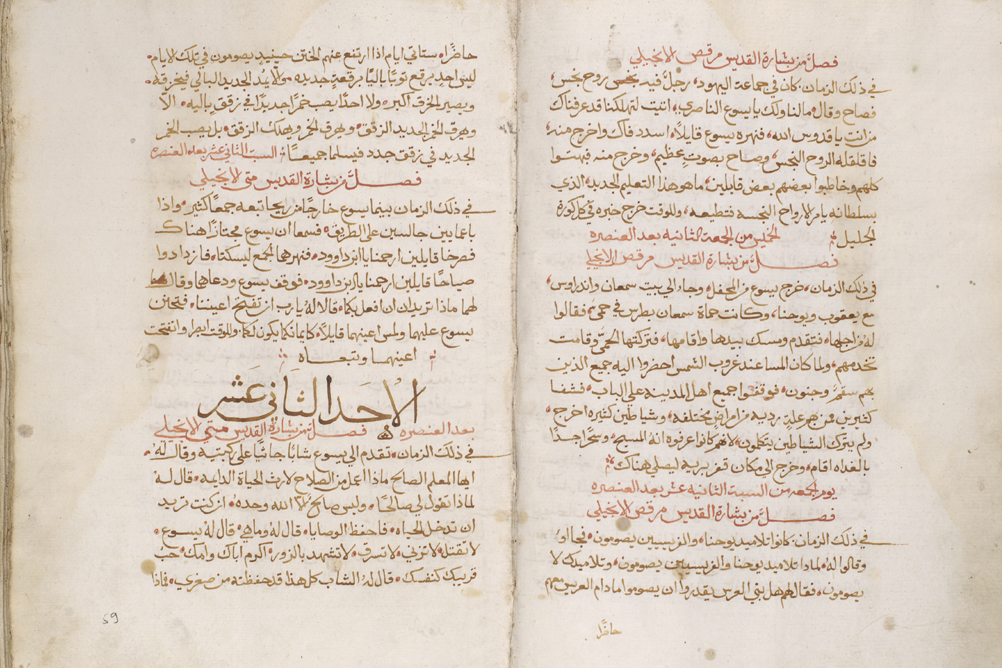 فصل من بشارة القديس مرقص الانجيلي
في ذلك الزمان كان في جماعة اليهود رجل فيه روح نجس
فصاح وقال مالنا ولك يايسوع الناصري اتيت لتهلكنا قد عرفناك
من انت ياقدوس الله فنهره يسوع قايلا اسدد فاك واخرج منه
فاقلقله الروح النجس وصاح بصوت عظيم وخرج منه فبهتوا
كلهم وخاطبوا بعضهم بعض قايلين ماهو هذا التعليم الجديد الذي
بسلطانه يامر الارواح النجسة فتطيعه وللوقت خرج خبره في كل كورة
الجليل الخميس من الجمعة الثانيه بعد العنصره
فصل من بشارة القديس مرقص الانجيلي
في ذلك الزمان خرج يسوع من المحفل وجاء الي بيت سمعان واندراوس
مع يعقوب ويوحنا وكانت حماة سمعان بطرس في حمي فقالوا
له من اجلها فتقدم ومسك بيدها واقامها فتركتها الحمي وقامت
تخدمهم ولما كان المسا عند غروب الشمس احضروا اليه جميع الذين
بهم سقم وجنون فوقفوا جميع اهل المدينه علي الباب فشفا
كثيرين من بهم علة رديه من امراض مختلفه وشياطين كثيره اخرج
ولم يترك الشياطين يتكلمون لانهم كانوا عرفوه انه المسيح وسحرا جدا
بالغداه اقام وخرج الي مكان قفر بريه ليصلي هناك
يوم الجمعه من السبة الثانيه عشر بعد العنصره
فصل من بشارة القديس مرقص الانجيلي
في ذلك الزمان كانوا تلاميد يوحنا والفريسيين يصومون فجااو
وقالوا له لماذا تلاميد يوحنا والفريسيين يصومون وتلاميدك لا
يصومون فقال لهم هل بني العرس يقدروا ان يصوموا مادام العريس معهم
حاضرا
حاضرا ستاتي ايام اذا ارتفع عنهم الختن حينيد يصومون في تلك الايام
ليس احد يرقع ثوبا باليا برقعة جديده ولا يشد الجديد البالي فيخرقه
ويصير الخرق اكبر ولا احدا يصب خمرا جديدا في زقق باليه الا
وهرق الخمر الجديد الزقق وهرق الخمر وهلك الزقق بل يصب الخمر
الجديد في زقق جدد فيسلما جميعا السبت الثاني عشر بعد العنصره
فصل من بشارة القديس متي الانجيلي
في ذلك الزمان بينما يسوع خارجا من ريحا تبعه جمعا كثير واذا
باعمايين جالسين علي الطريق فسمعا ان يسوع مجتازا هناك
فصرخا قايلين ارحمنا ياابن داوود فنهرهما الجمع ليسكتا فازدادوا
صياحا قايلين ارحمنا ياابن داوود فوقف يسوع ودعاهما وقال
لهما ماذا تريدان ان افعل بكما قالا له يارب ان تفتح اعيننا فتحنن
يسوع عليهما ولمس اعينهما قايلا كايمانكما يكون لكما وللوقت ابصرا وانفتحت
اعينهما وتبعاه
الاحد الثاني عشر
بعد العنصره فصل من بشارة القديس متي الانجيلي
في ذلك الزمان تقدم الي يسوع شابا جاثيا علي ركبتيه وقال له
ايها المعلم الصالح ماذا اعمل من الصلاح لارث الحياة الدايمه قال له
لماذا تقول لي صالحا وليس صالح الا الله وحده ان كنت تريد
ان تدخل الحياه فاحفظ الوصايا قال له وما هي قال له يسوع
لا تقتل لا تزني لا تسرق لا تشهد بالزور اكرم اباك وامك حب
قريبك كنفسك قال له الشاب كل هذا قد حفظته من صغري فاذا
59